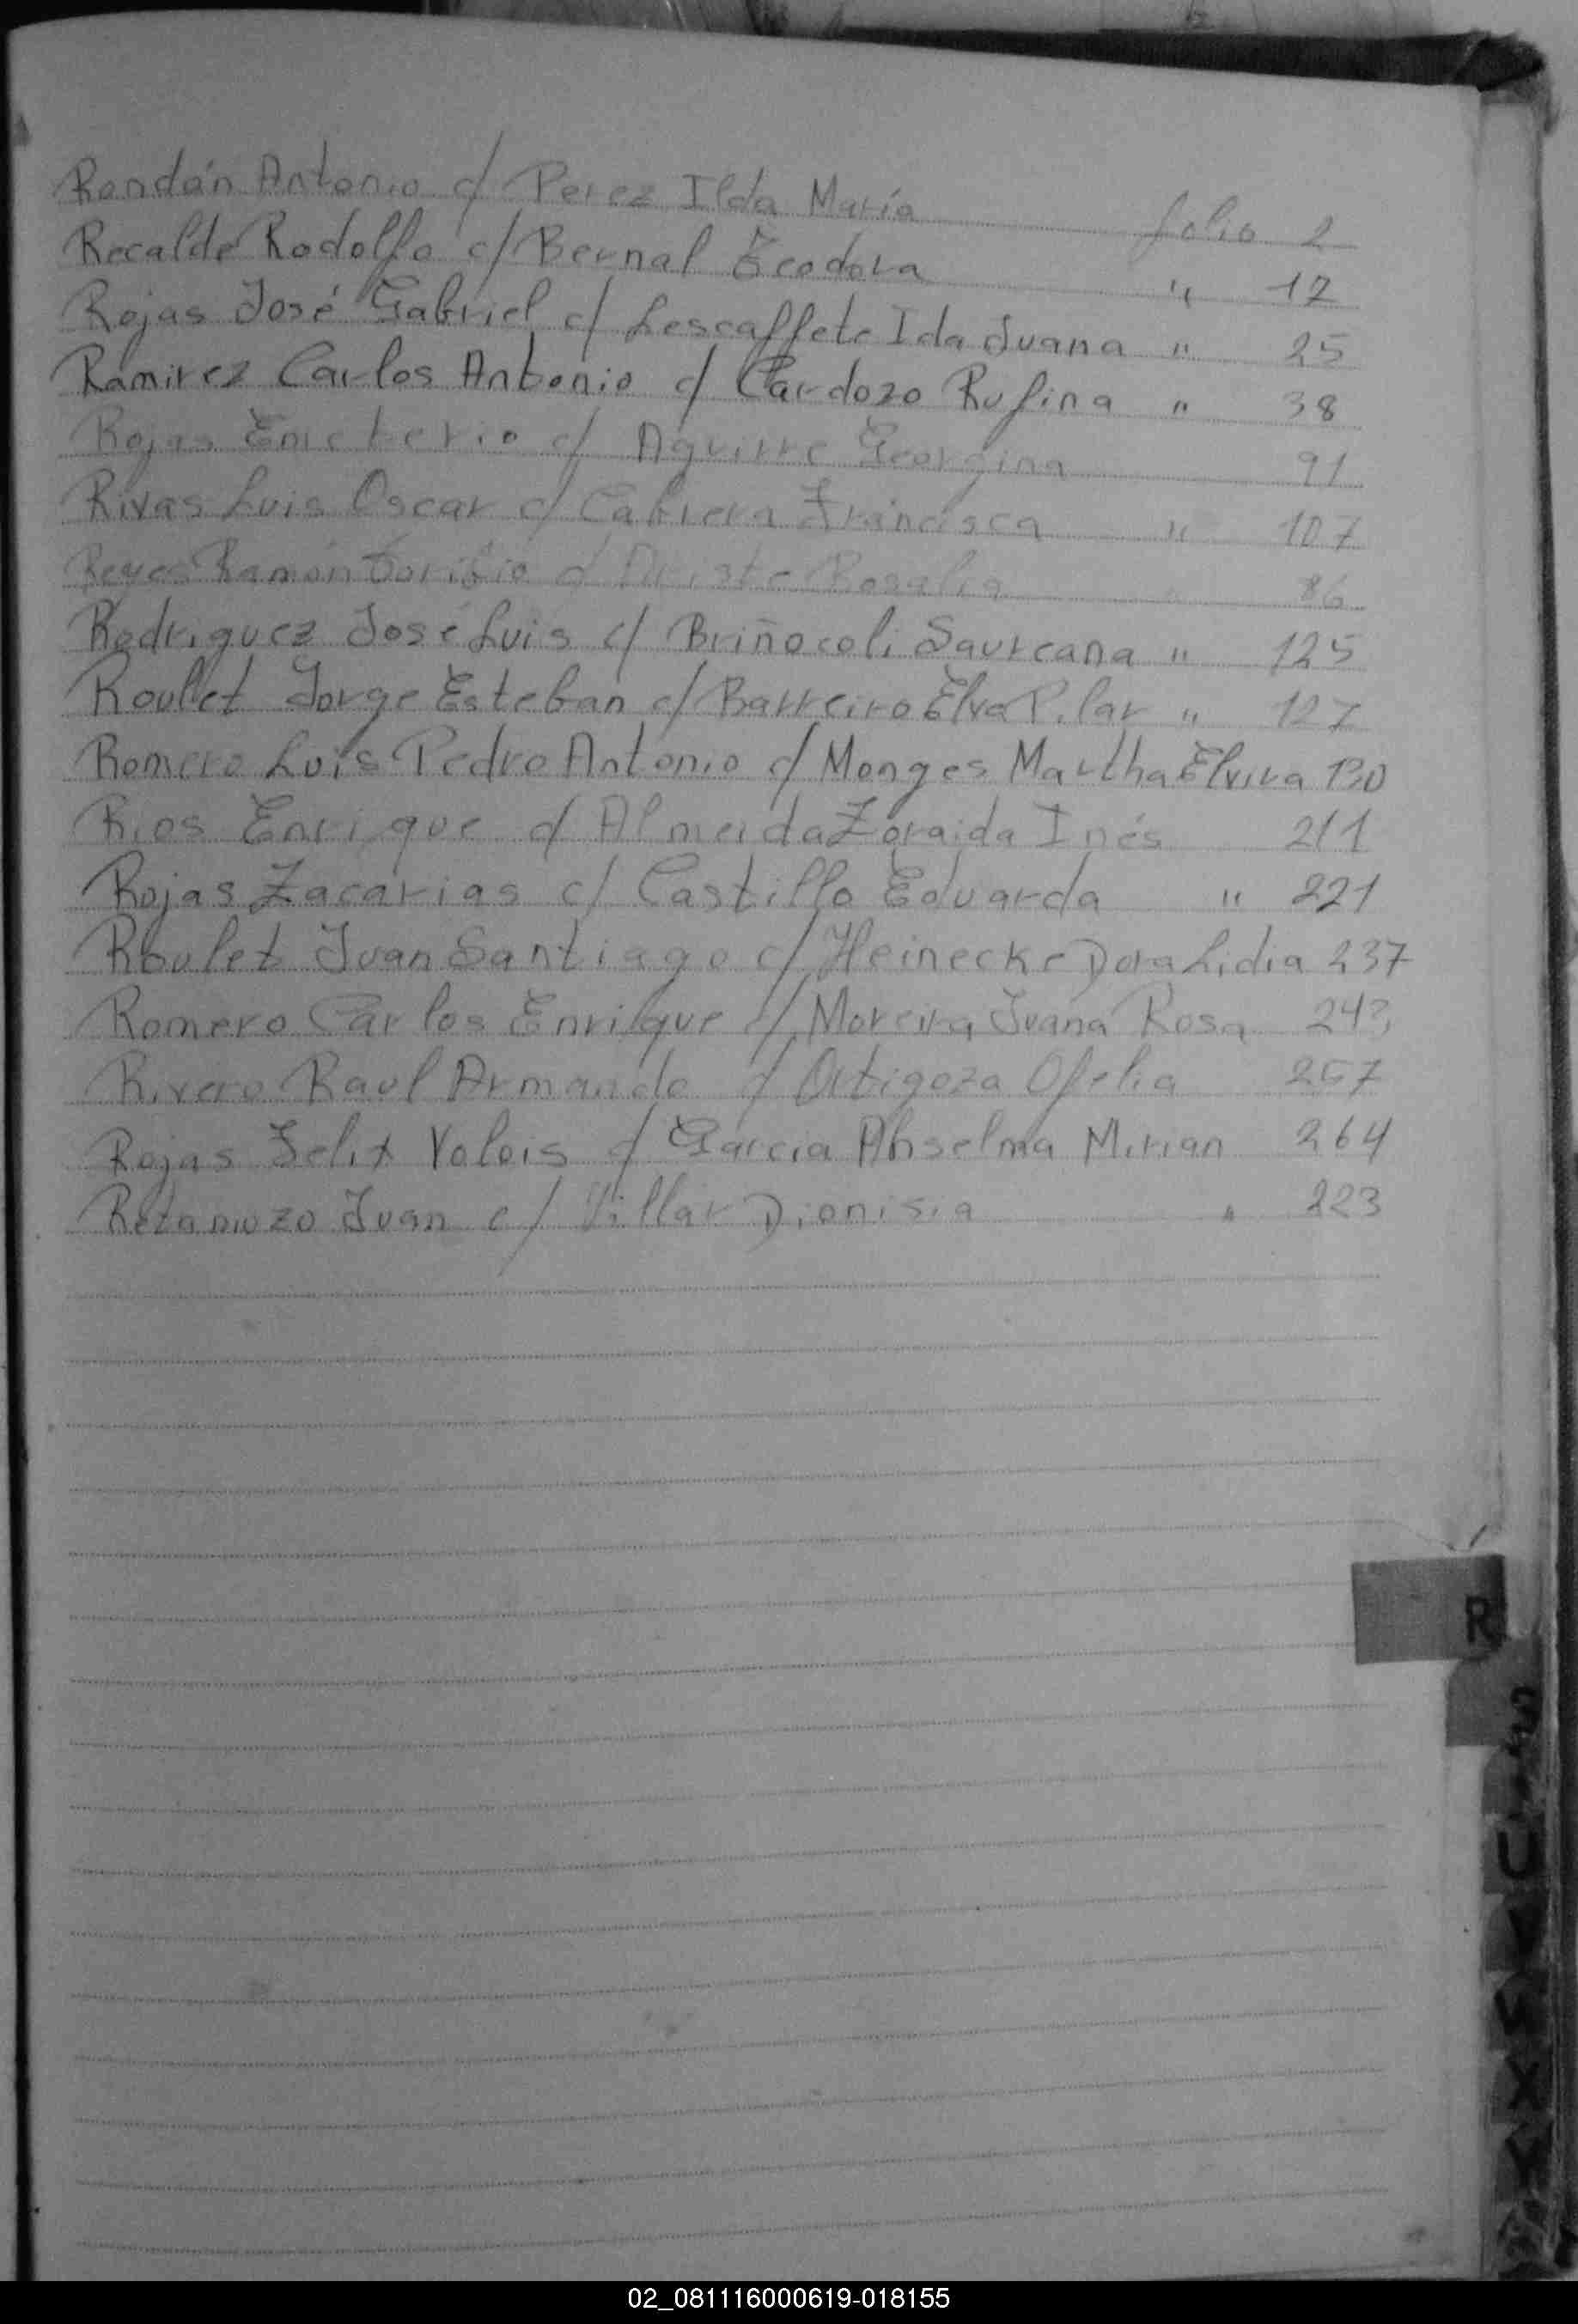 Rondán Antonio c/ Perez Ilda María folio 2
Recalde Rodolfo c/ Bernal Teodora " 12
Rojas José Gabriel c/ Lescaffete Ida Juana " 25
Ramirez Carlos Antonio c/ Cardozo Rufina " 38
Rojas Emeterio c/ Aguirre Georgina 91
Rivas Luis Oscar c/ Cabrera Francisca " 107
Reyes Ramón c/ Rosalia " 86
Rodriguez José Luis c/ Briñocoli Saureana " 125
Roullet Jorge Esteban c/ Barreiro Elva Pilar " 127
Romero Luis Pedro Antonio c/ Monges Martha Elvira 130
Rios Enrique c/ Almeida Zoraida Inés 211
Rojas Zacarias c/ Castillo Eduarda " 221
Roulet Juan Santiago c/ Heinecke Dora Lidia 237
Romero Carlos Enrique c/ Moreira Juana Rosa 243
Rivero Raul Armando c/ Ortigoza Ofelia 257
Rojas Felix Valois c/ Garcia Anselma Mirian 264
Retamozo Juan c/ Villar Dionisia " 223
R
U
V
W
X
Y
02_081116000619-018155